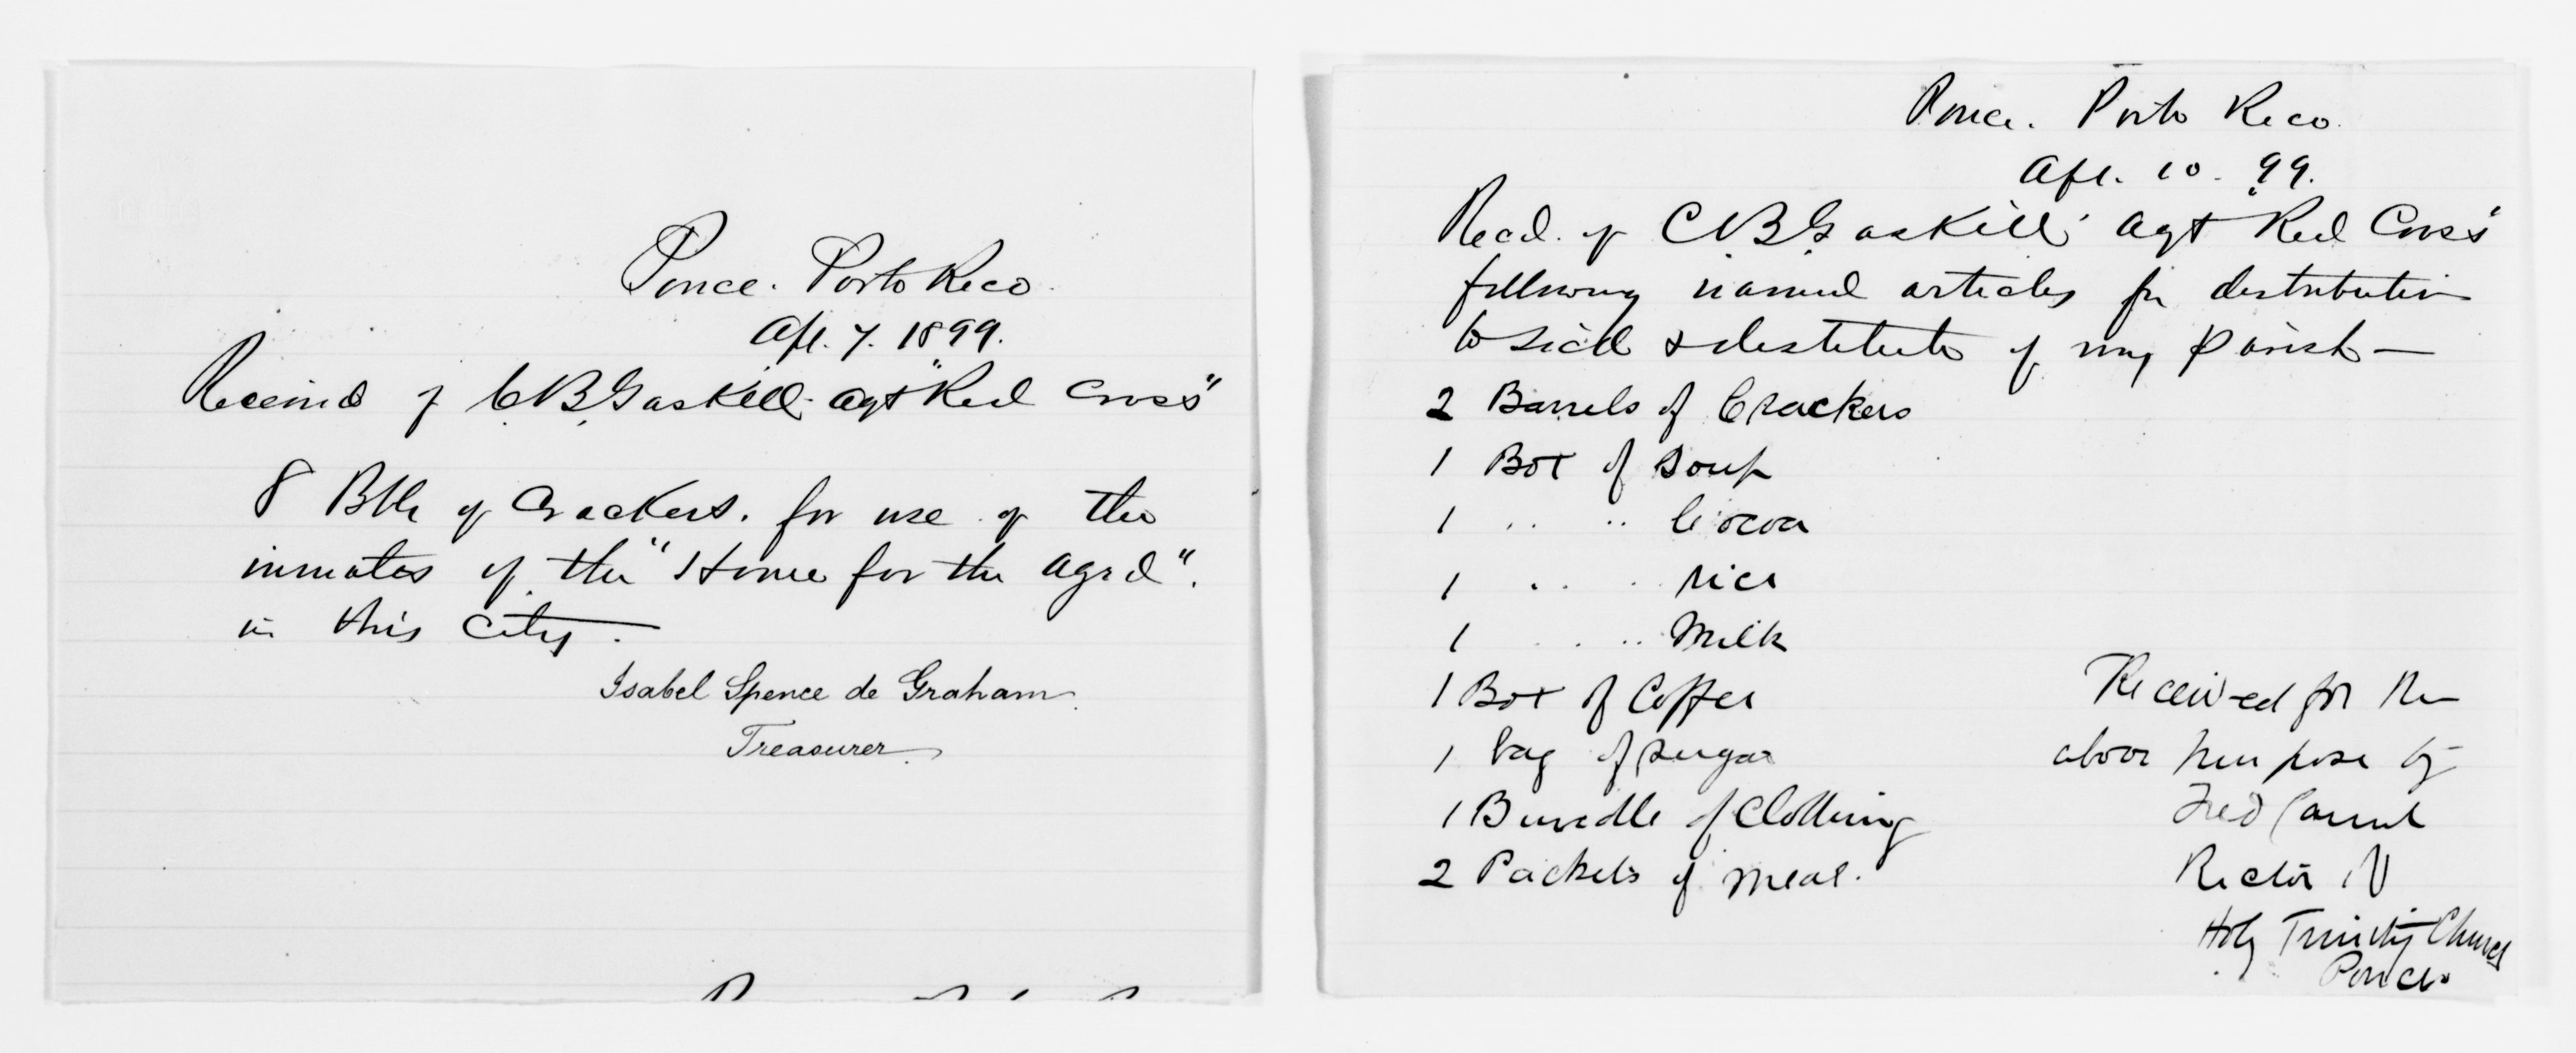 Ponce. Porto Reco.
Apl. 7. 1899.
Received of C.B. Gaskill. agt "Red Cross"
8 Bbls of Crackers. for use of the
inmates of the "Home for the aged".
in this city.
Isabel Spence de Graham.
Treasurer.
Ponce. Porto Reco.
Apl. 10. 99.
Recd. of C.B. Gaskill agt "Red Cross"
following named articles for distribution
to sick & destitute of my Parish —
2 Barrels of Crackers
1 Box of Soup
1 " " Cocoa
1 " " rice
1 " " Milk
1 Box of Coffee
1 bag of sugar
1 Bundle of Clothing
2 Packets of Meal.
Received for the
above purpose by
Fred
Rector
Holy Trinity Church
Ponce.